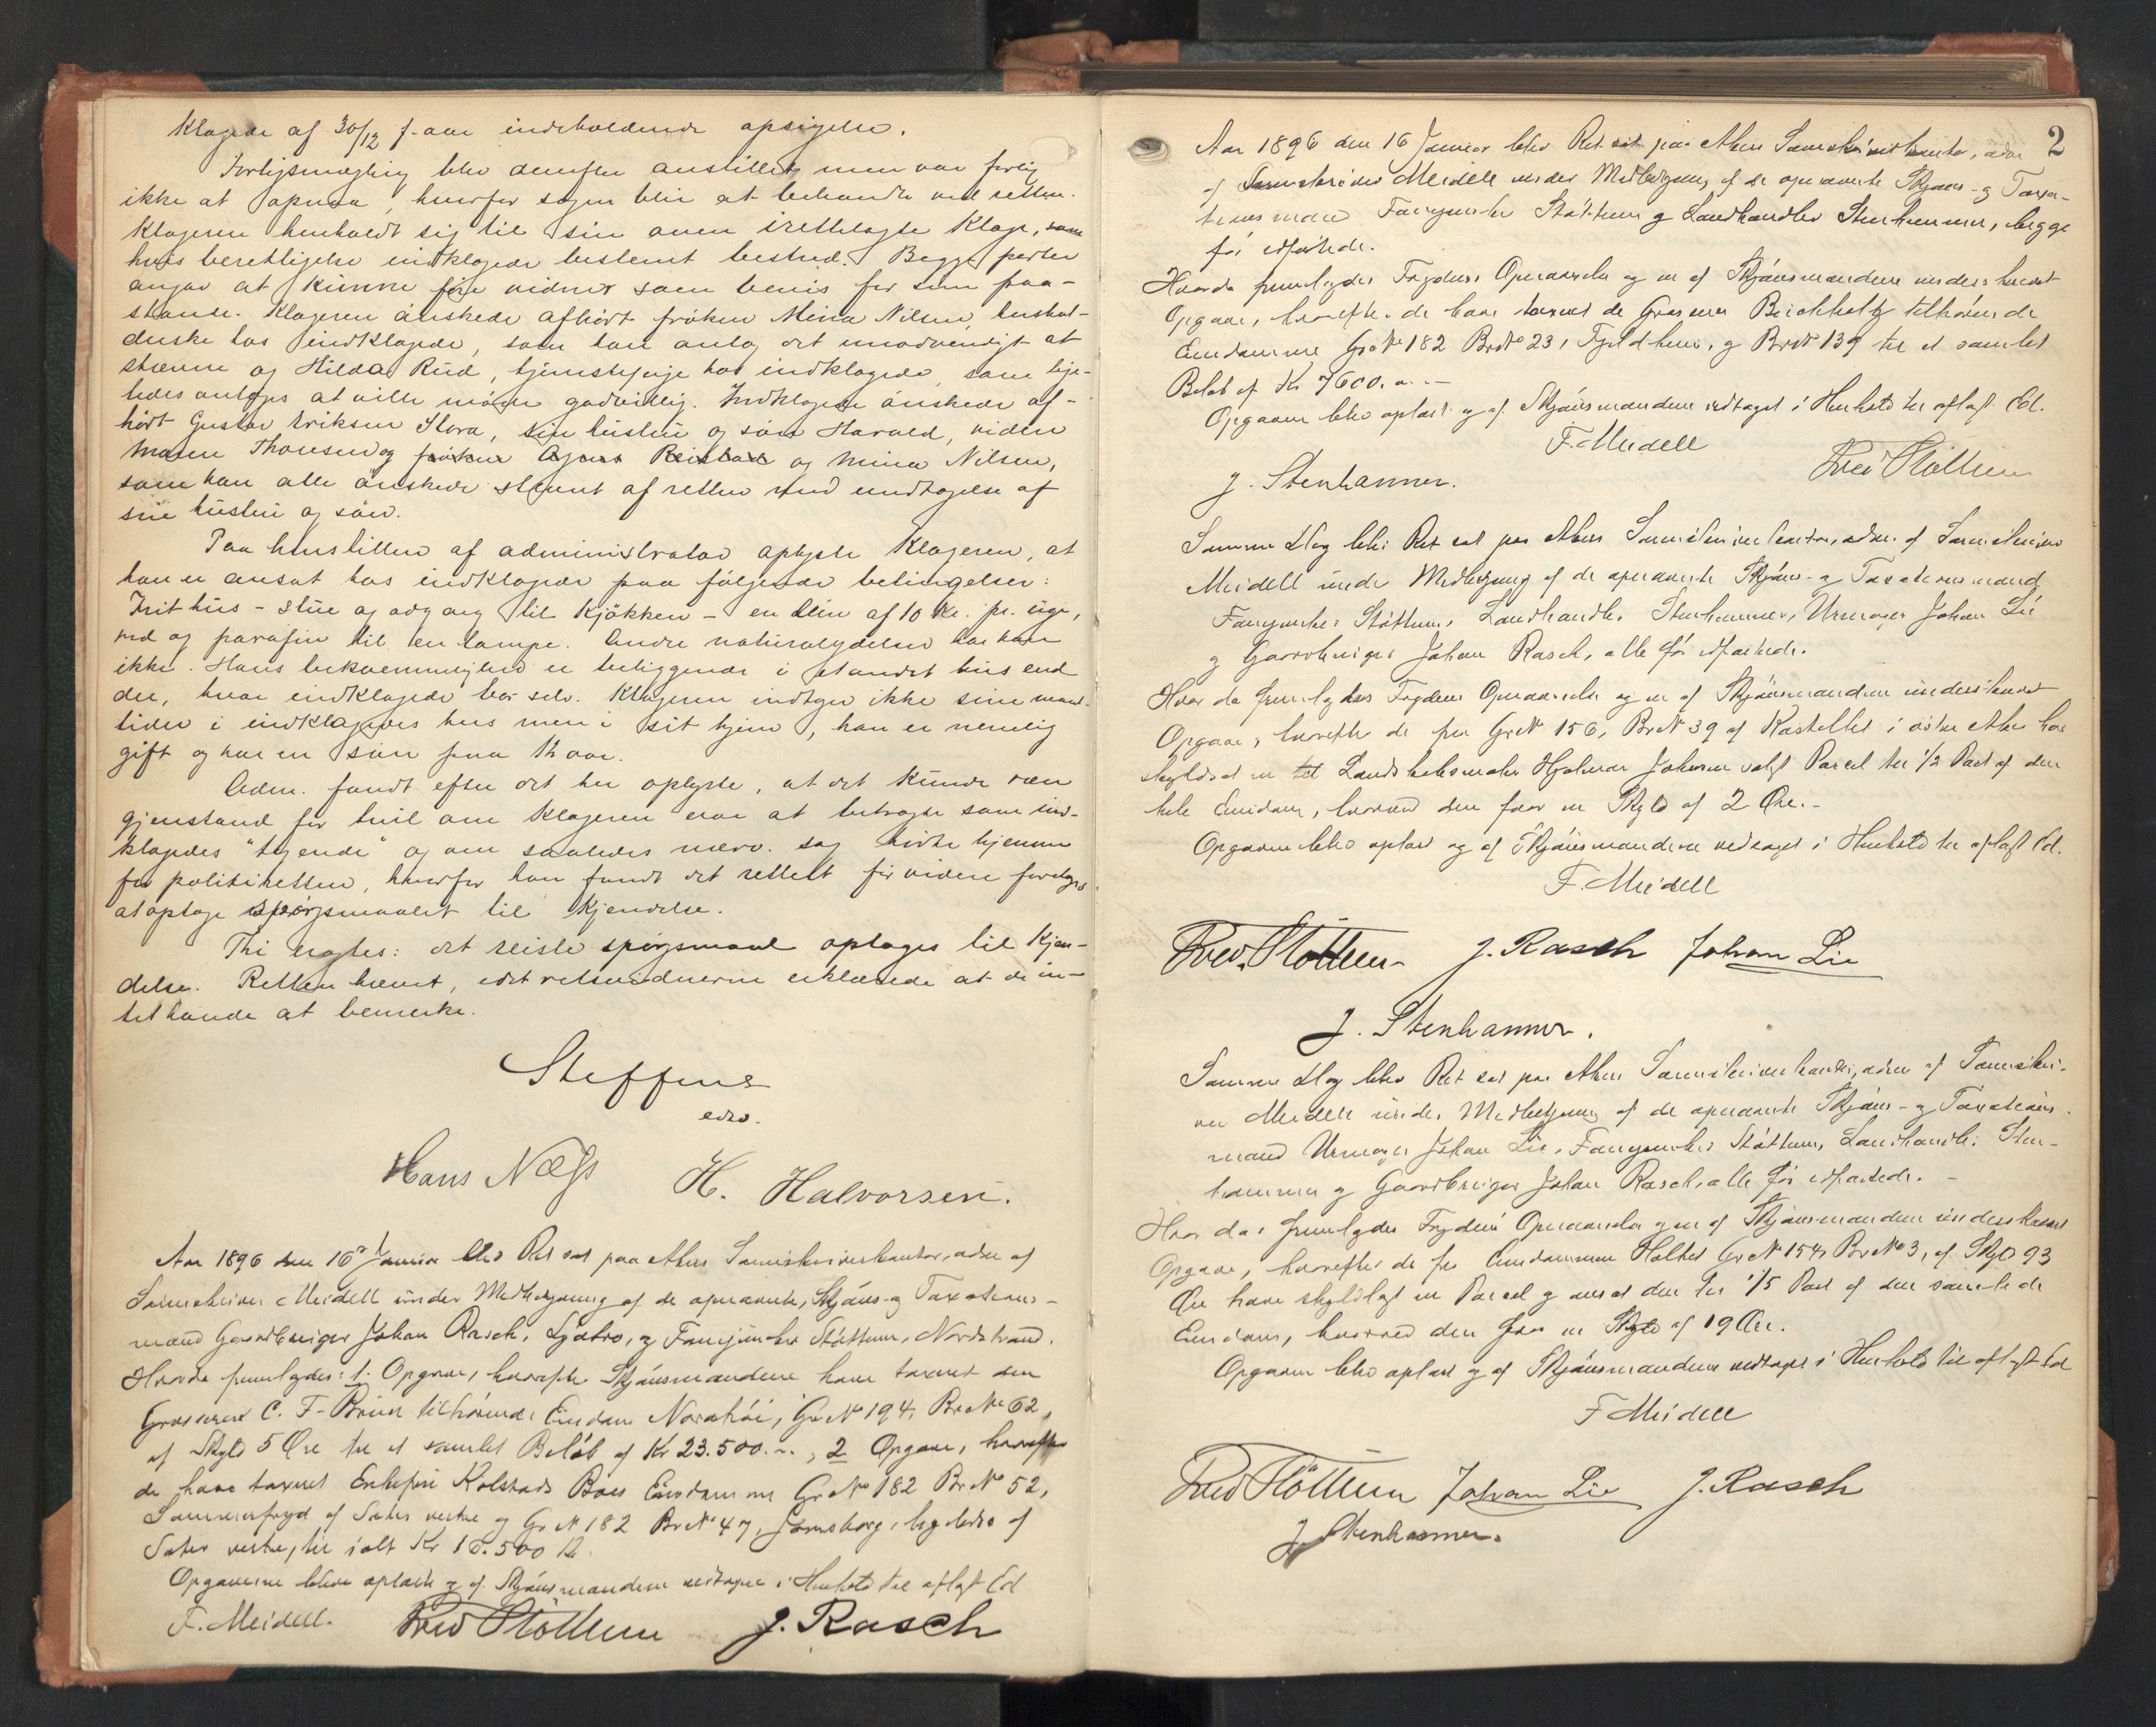 Klagede af 30/12 f. aar indeholdende opsigelse.
Forligsmægling blev derefter anstillet, men var forlig
ikke at opnaa, hvorfor sagen blir at behandle ved retten.
Klageren henholdt sig til sin oven irettelagte klage,
hvis berettigelse indklagede bestemt bestred. Begge parter
angav at kunne føre vidner som bevis for sine paa-
stande. Klageren ønskede afhørt frøken Mina Nilsen, hushol-
derske hos indklagede, som han antog det unødvendigt at
stævne og Hilda Rud, tjenestepige hos indklagede, som lige-
ledes antages at ville møde godvillig. Indklagede ønskede af-
hørt Gustav Eriksen Stora, sin hustru og søn Harald, videre
Maren Thoresen og frøken Agnes Reistad og Mina Nilsen,
som han alle ønskede stevnt af retten med undtagelse af
sin hustru og søn.
Paa henstillen af administrator oplyste klageren, at
han er ansat hos indklagede paa følgende betingelser:
Frit hus - stue og adgang til kjøkken - en løn af 10 kr. pr. uge,
ved og parafin til en lampe. Andre naturalydelser har han
ikke. Hans bekvemmelighed er beliggende i et andet hus end
det, hvor indklagede bor selv. Klageren indtager ikke sine maal-
tider i indklagedes hus men i sit hjem, han er nemlig
gift og har en søn paa 12 aar.
Adm. fandt efter det her oplyste, at det kunde være
gjenstand for tvil om klageren var at betragte som ind-
klagedes "tyende" og om saaledes nærv. sag hørte hjemme
for politiretten, hvorfor han fandt det rettest før videre foretages
at optage spørgsmaalet til kjendelse.
Thi eragtes: det reiste spørgsmaal optages til kjen-
delse. Retten hævet, idet retsvidnerne erklærede at de in-
tet havde at bemerke.
Steffens
edsv.
Hans Næss H. Halvorsen.
Aar 1896 den 16de Januar blev Ret sat paa Akers Sorenskriverkontor, adm af
Sorenskriver Meidell under Medbetjening af de opnævnte, Skjøns- og Taxations-
mænd Gaardbruger Johan Rasch, Ljabro, og Fanejunker Støttum, Nordstrand.
Hvorda fremlagdes: 1. Opgave, hvorefter Skjønsmændene have taxeret den
Grosserer C. F. Bruun tilhørende Eiendom Norahøi, Gr N 194, Br No 62,
af Skyld 5 Øre til et samlet Beløb af Kr 23.500.-, 2 Opgave, hvorefter
de have taxeret Enkefru Kolstads Boes Eiendomme Gr No 182 Br No 52,
Sommerfryd af Sæter vestre og Gr N 182 Br N 47, Jomsborg, ligeledes af
Sæter vestre, til ialt Kr 16.500
Opgaverne bleve oplæste og af Skjønsmændene vedtagne i Henhold til aflagt Ed
F. Meidell. Fred Støttum J. Rasch
2
Aar 1896 den 16 Januar blev Ret sat paa Akers Sorenskriverkontor, adm
af Sorenskriver Meidell under Medbetjening af de opnævnte Skjøns- og Taxa-
tionsmænd Fanejunker Støttum og Landhandler Stenhammer, begge
før edfæstede.
Hvorda fremlagdes Fogdens Opnævnelse og en af Skjønsmændene underskrevet
Opgave, hvorefter de have taxeret de Grosserer Beichholtz tilhørende
Eiendomme Gr No 182 Br No 23, Fjeldheim, og Br N 139 til et samlet
Beløb af Kr 7600.
Opgaven blev oplæst og af Skjønsmændene vedtaget i Henhold til aflagt Ed.
F. Meidell
J. Stenhammer. Fred Støttum
Samme Dag blev Ret sat paa Akers Sorenskriverkontor, adm. af Sorenskriver
Meidell under Medbetjening af de opnævnte Skjøns- og Taxationsmænd
Fanejunker Støttum, Landhandler Stenhammer, Urmager Johan Lie
og Gaardbruger Johan Rasch, alle før edfæstede.
Hvor da fremlagdes Fogdens Opnævnelse og en af Skjønsmændene underskrevet
Opgave, hvorefter de fra Gr N 156, Br N 39 af Kastellet i østre Aker har
skyldsat en til Landskabsmaler Hjalmar Johnsen solgt Parcel til 1/2 Part af den
hele Eiendom, hvorved den faar en Skyld af 2 Øre.-
Opgaven blev oplæst og af Skjønsmændene vedtaget i Henhold til aflagt Ed.
F. Meidell
Fred. Støttum J. Rasch Johan Lie
J. Stenhammer.
Samme Dag blev Ret sat paa Akers Sorenskriverkontor, adm af Sorenskri-
ver Meidell under Medbetjening af de opnævnte Skjøns- og Taxations-
mænd Urmager Johan Lie, Fanejunker Støttum, Landhandler Sten-
hammer og Gaardbruger Johan Rasch, alle før edfæstede. -
Hvor da fremlagdes Fogdens Opnævnelse og en af Skjønsmændene underskrevet
Opgave, hvorefter de fra Eiendommen Holtet Gr N 154, Br No 3, af Skyld 93
Øre have skyldlagt en Parcel og ansat den til 1/5 Part af den samlede
Eiendom, hvorved den faar en Skyld af 19 Øre.
Opgaven blev oplæst og af Skjønsmændene vedtaget i Henhold til aflagt Ed
F Meidell
Fred Støttum Johan Lie J. Rasch
J. Stenhammer.